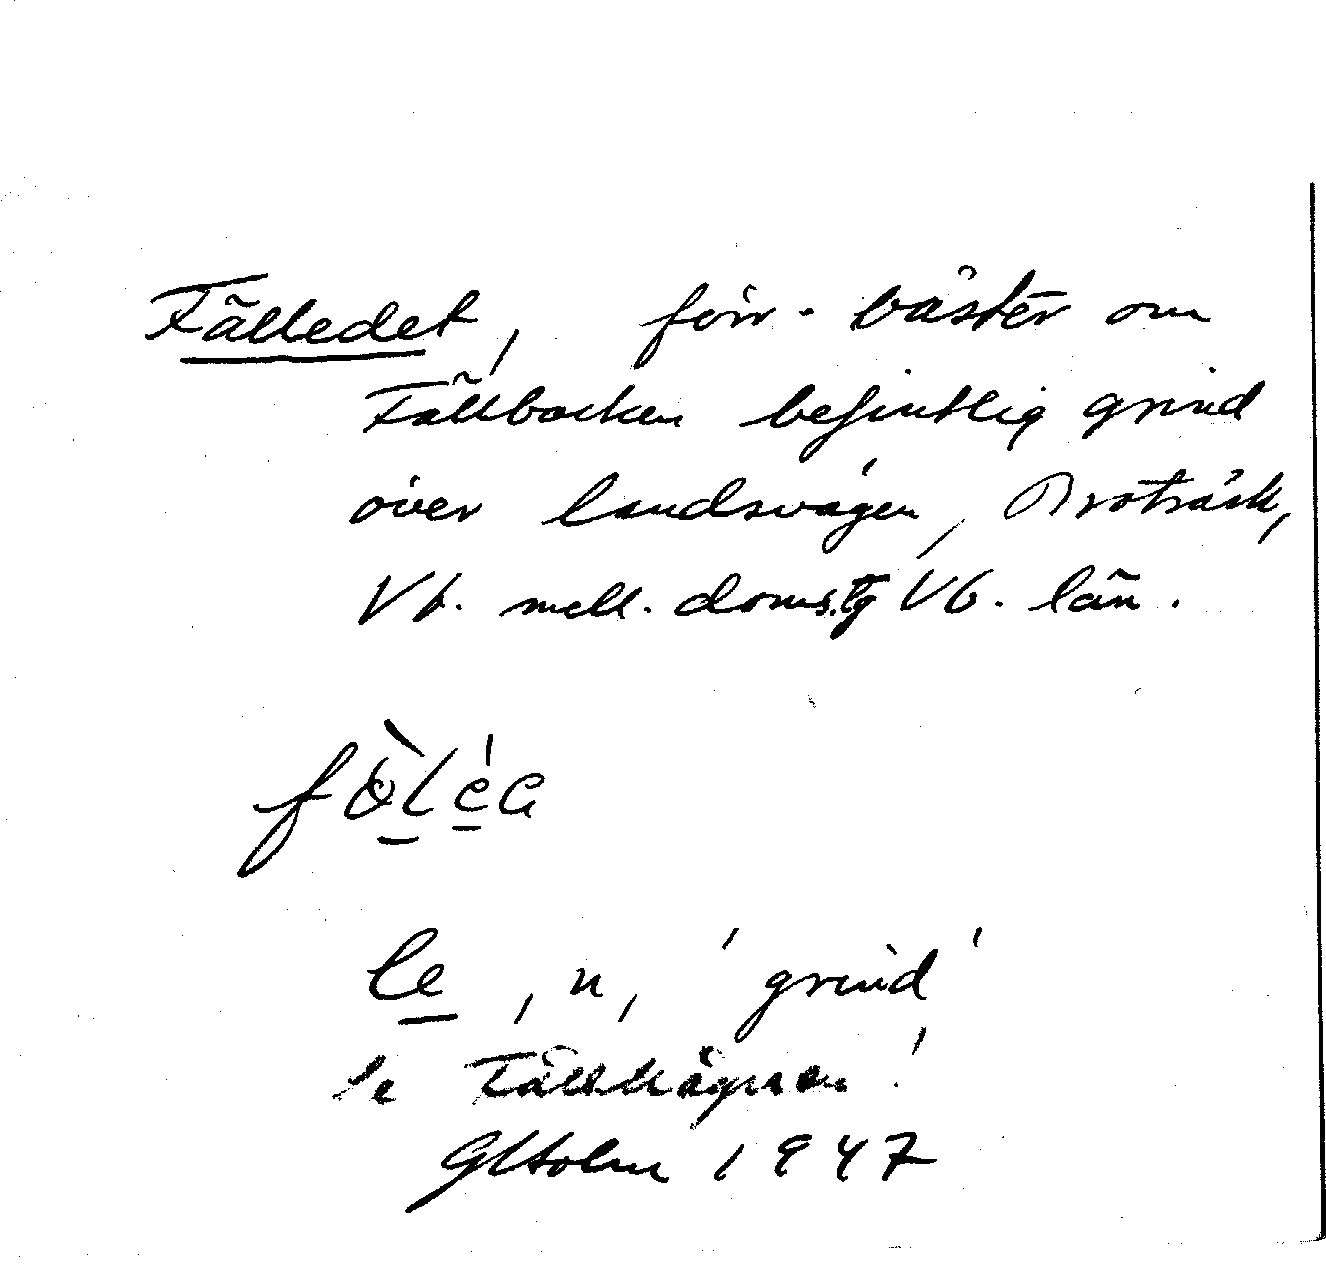 Fälledet, förr väster om
Fällbacken befintlig grind
över landsvägen, Broträsk,
Vb. mell. doms.tg Vb. län.
le, n, 'grind'
se Fällhägnan!
GHolm 1947